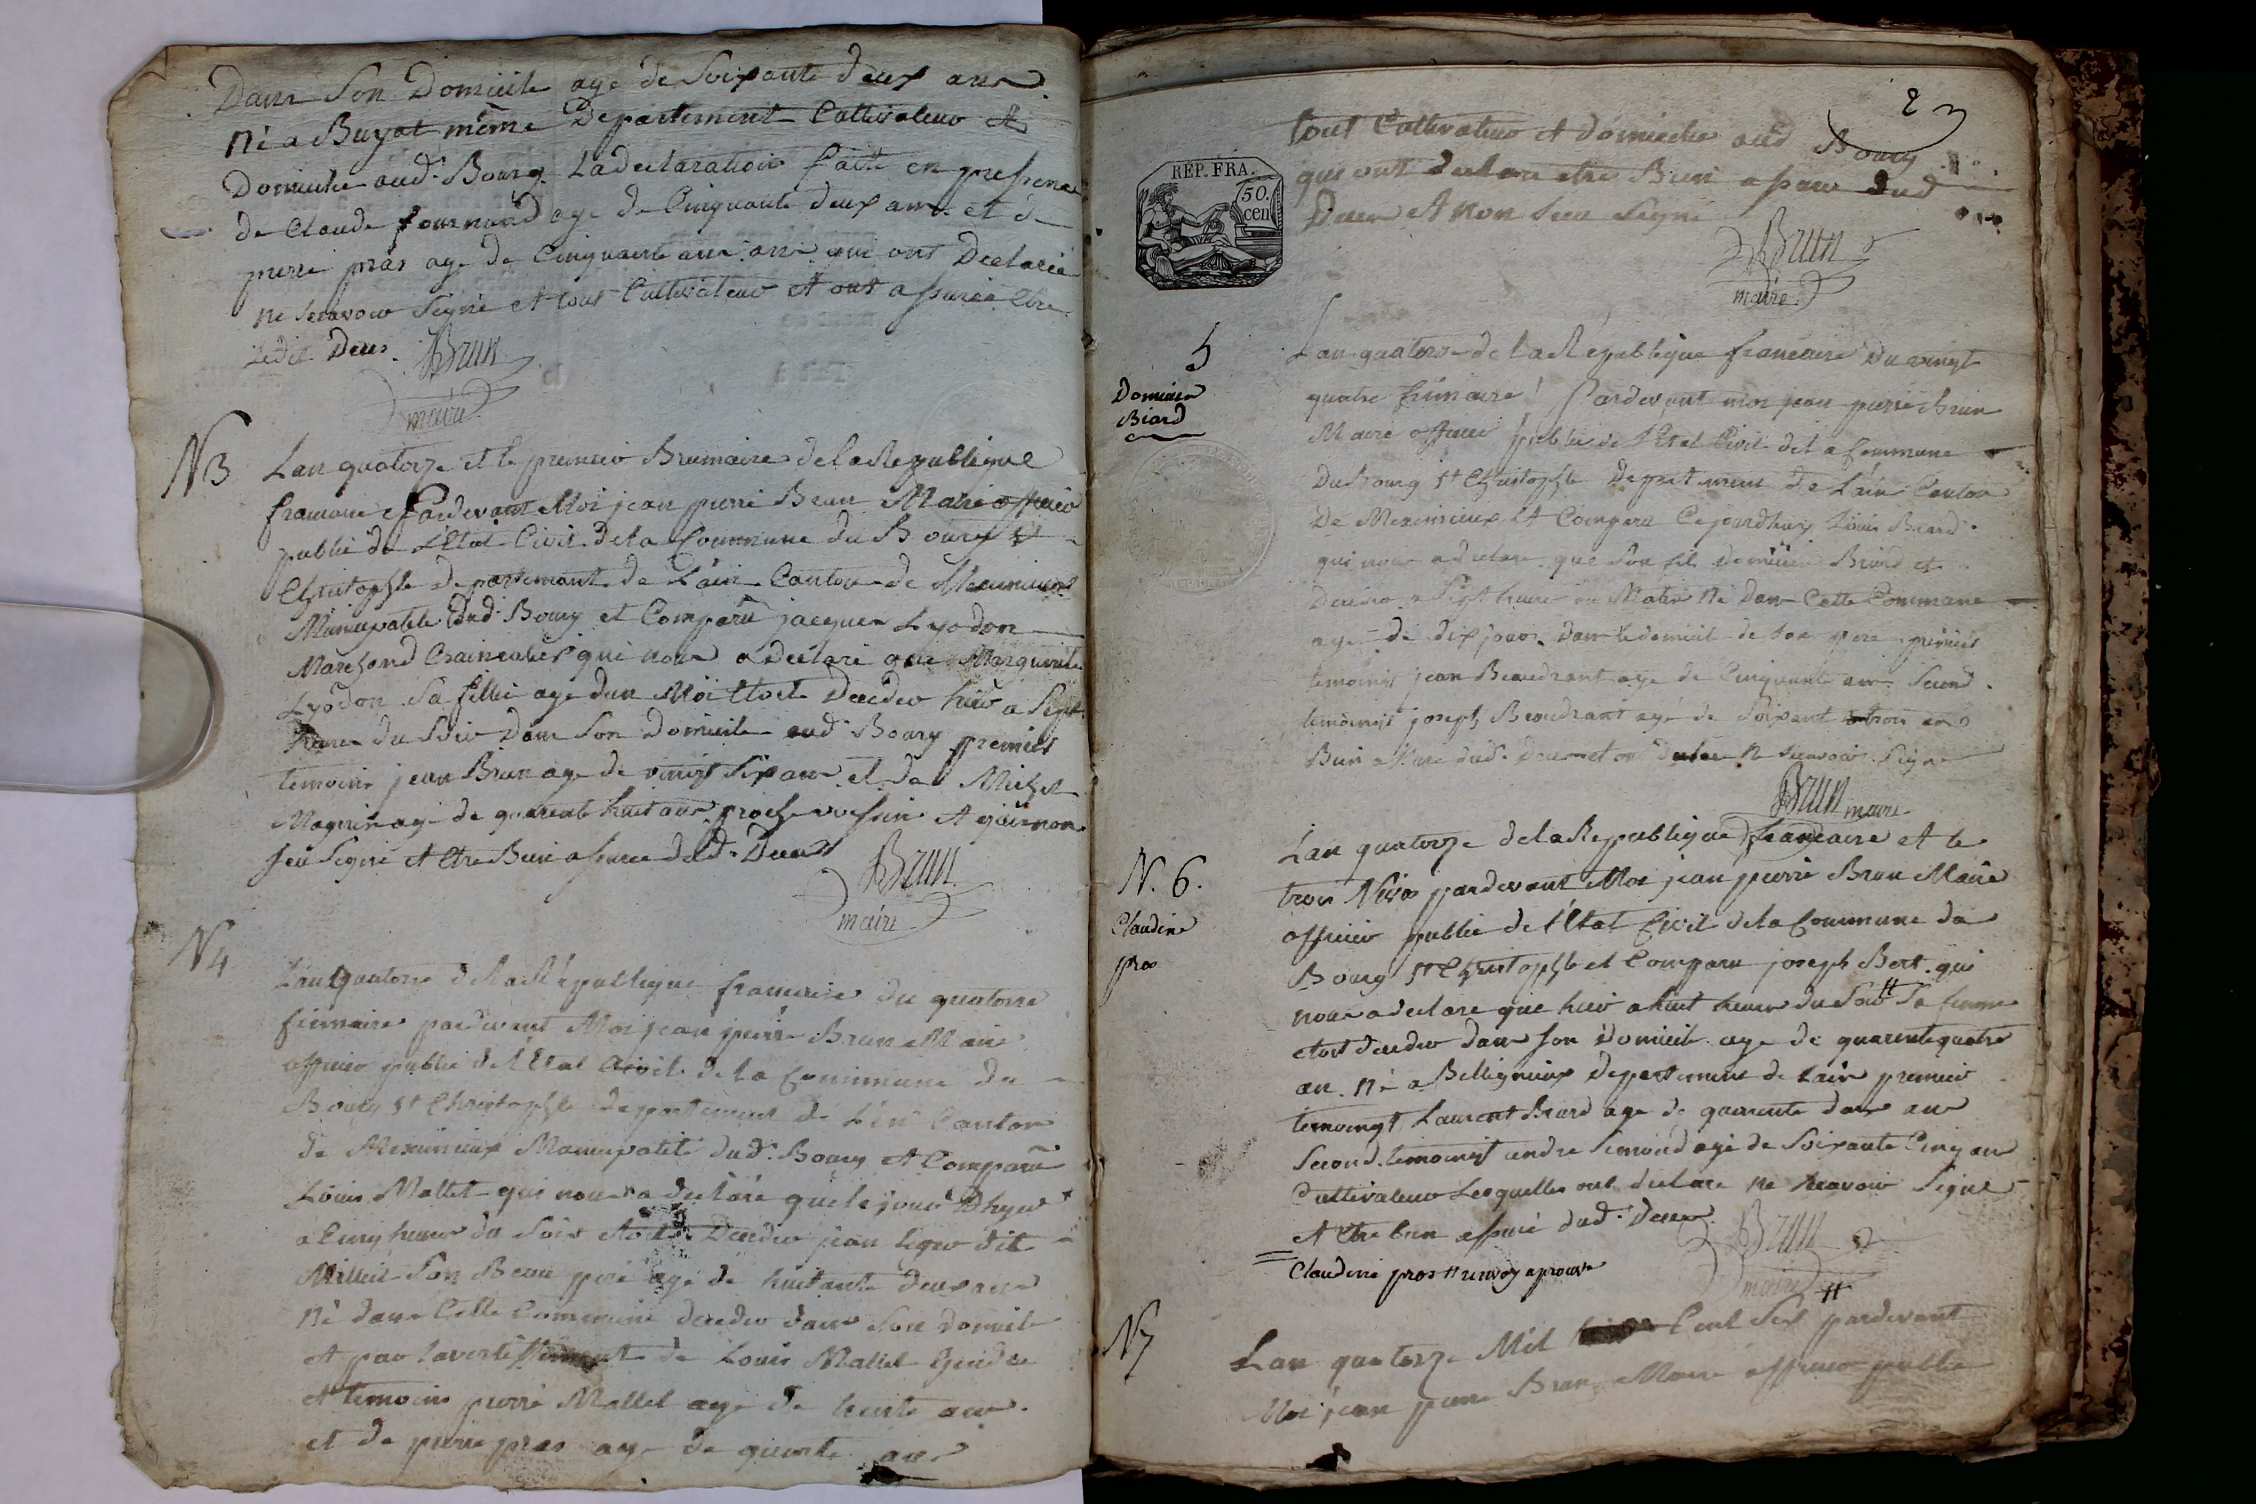 Dans Son Domicile age de Soixante deux ans
né a Buyat même Departement Cultivateur et
Domicilie aud. Bourg La declaration faitte en presence
de Claude fournand age de Cinquante deux ans et de
pierre pras age de Cinquante ans qui ont Declarée
ne Scavoir Signé et tous Cultivateur et ont assurée Etre
ledit Deces.
Brun
maire
N 3
Lan quatorze et le premier Brumaire de la Republique
francaise Pardevant Moi jean pierre Brun Maire officier
public de l'Etat Civil de la Commune du Bourg St
Christophle departement de Lain Canton de Meximieux
Municipalité dud Bourg et Comparu jacques Lyodon
Marchand qui nous a declaré que Marguerite
Lyodon Sa fillie age dun Moi Etoit Deceder hier a Sept
heures du Soir Dans Son Domicile aud Bourg premier
temoins jean Brun age de vingt Six ans et de Michel
Magnin age de quarente huit ans proche voissin et qui non
Seu Signé et Etre Bien assuree dud. Deces
Brun
maire
N 4
Lan quatorze de la Republique francaise du quatorze
frimaire pardevant Moi jean pierre Brun Maire
officier public de l'Etat Civil de la Commune du
Bourg St Christophle departement de L'ain Canton
de Meximieux Municipalité dud. Bourg et Comparu
Louis Mallet qui nous a declaré que le jour Dhyer
a Cinq heures du Soir Etoit Deceder jean dit
Son Beau pere age de huitante deux ans
né dans Cette Commune deceder dans Son domicile
et par lavertissement de Louis Mallet Gendre
et temoins pierre Mallet age de trente ans
et de pierre pras age de ans
2
tout Cultivateur et domicilie aud Bourg
qui ont declare etre Bien assure dud
Deces et non Seu Signé
Brun
maire
RÉP. FRA.
50.
cen
5
Dominique
Biard
Lan quatorze de la République francaise Du vingt
quatre frimaire Pardevant moi jean pierre Brun
Maire officier public de l'Etat Civil de la Commune
Du Bourg St Christophle Departement de L'ain Canton
De Meximieux et Comparu Cejourdhuy Louis Biard
qui nous a declare que Son fils Biard et
Deceder a Sept heures du Matin né dans Cette Commune
age de dix jours dans le domicile de Son pere premier
temoings jean Beaudrant age de Cinquante ans Second
temoings joseph Beaudrant age de Soixante trois ans
Bien assure dud. Deces et ont declare ne Scavoir Signe
Brun maire
N. 6.
Claudine
pras
Lan quatorze de la Republique francaise et le
trois Nivos pardevant Moi jean pierre Brun Maire
officier public de l'Etat Civil de la Commune du
Bourg St Christophle et Comparu joseph Bert qui
nous a declare que hier a huit heures du Soir # Sa femme
etoit deceder dans Son Domicile age de quarente quatre
an né a Belligneux Departement de Lain premier
temoingt Laurent Biard age de quarente deux ans
Second temoingt andre Simond age de Soixante Cinq ans
Cultivateur Lesquelles ont declare ne Scavoir Signe
et Etre bien assuré dud. Deces
Brun
maire
= Claudine pras # renvoy aprouve
N 7
Lan quatorze Mil Cent Six pardevant
Moi jean pierre Brun Maire officier public